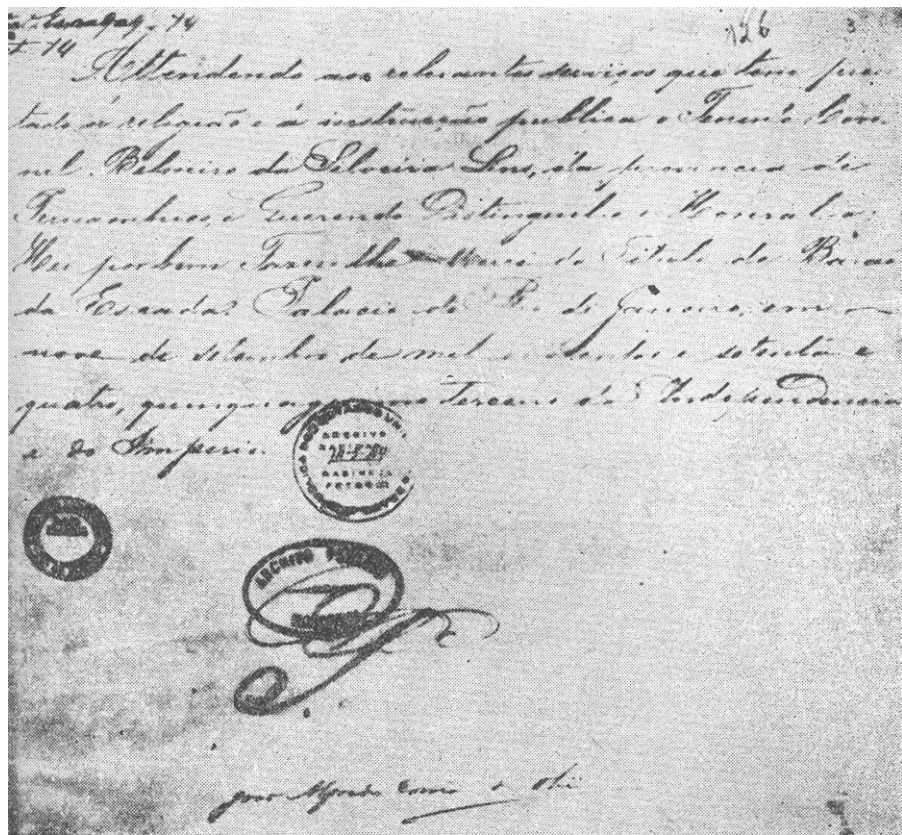 126 3
t. 14
Attendendo aos relevantes serviços que tem pres-
tado á religião e á instrucção publica o Tenente Coro-
nel Belmiro da Silveira Lins, da provincia de
Pernambuco, e Querendo Distinguil-o e Honral-o:
Hei por bem Fazer-lhe Mercê do Titulo de Barão
da Escada. Palacio do Rio de Janeiro, em
nove de setembro de mil oitocentos e setenta e
quatro, quinquagesimo terceiro da Independencia
e do Imperio.
ARCHIVO
ARCHIVO
João Alfredo Corrêa de Oliª